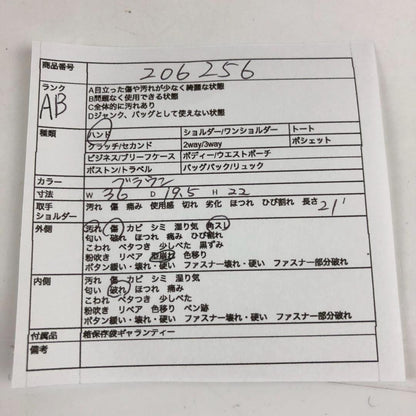 商品番号 206256
ランク AB
A目立った傷や汚れが少なく綺麗な状態
B問題なく使用できる状態
C全体的に汚れあり
Dジャンク、バッグとして使えない状態
種類 ハンド ショルダー/ワンショルダー トート
クラッチ/セカンド 2way/3way ポシェット
ビジネス/ブリーフケース ボディー/ウエストポーチ
ボストン/トラベル バックパック/リュック
カラー ブラウン
寸法 W 36 D 19.5 H 22
取手 ショルダー 汚れ 傷 痛み 使用感 切れ 劣化 ほつれ ひび割れ 長さ 21
外側 汚れ 傷 カビ シミ 湿り気 角スレ
匂い 破れ ほつれ 痛み ひび割れ
こわれ ベタつき 少しべた 黒ずみ
粉吹き リペア 型崩れ 色移り
ボタン緩い・壊れ・硬い ファスナー壊れ・硬い ファスナー部分破れ
内側 汚れ 傷 カビ シミ 湿り気
匂い 破れ ほつれ 痛み
こわれ ベタつき 少しべた
粉吹き リペア 色移り ペン跡
ボタン緩い・壊れ・硬い ファスナー壊れ・硬い ファスナー部分破れ
付属品 箱保存袋ギャランティー
備考